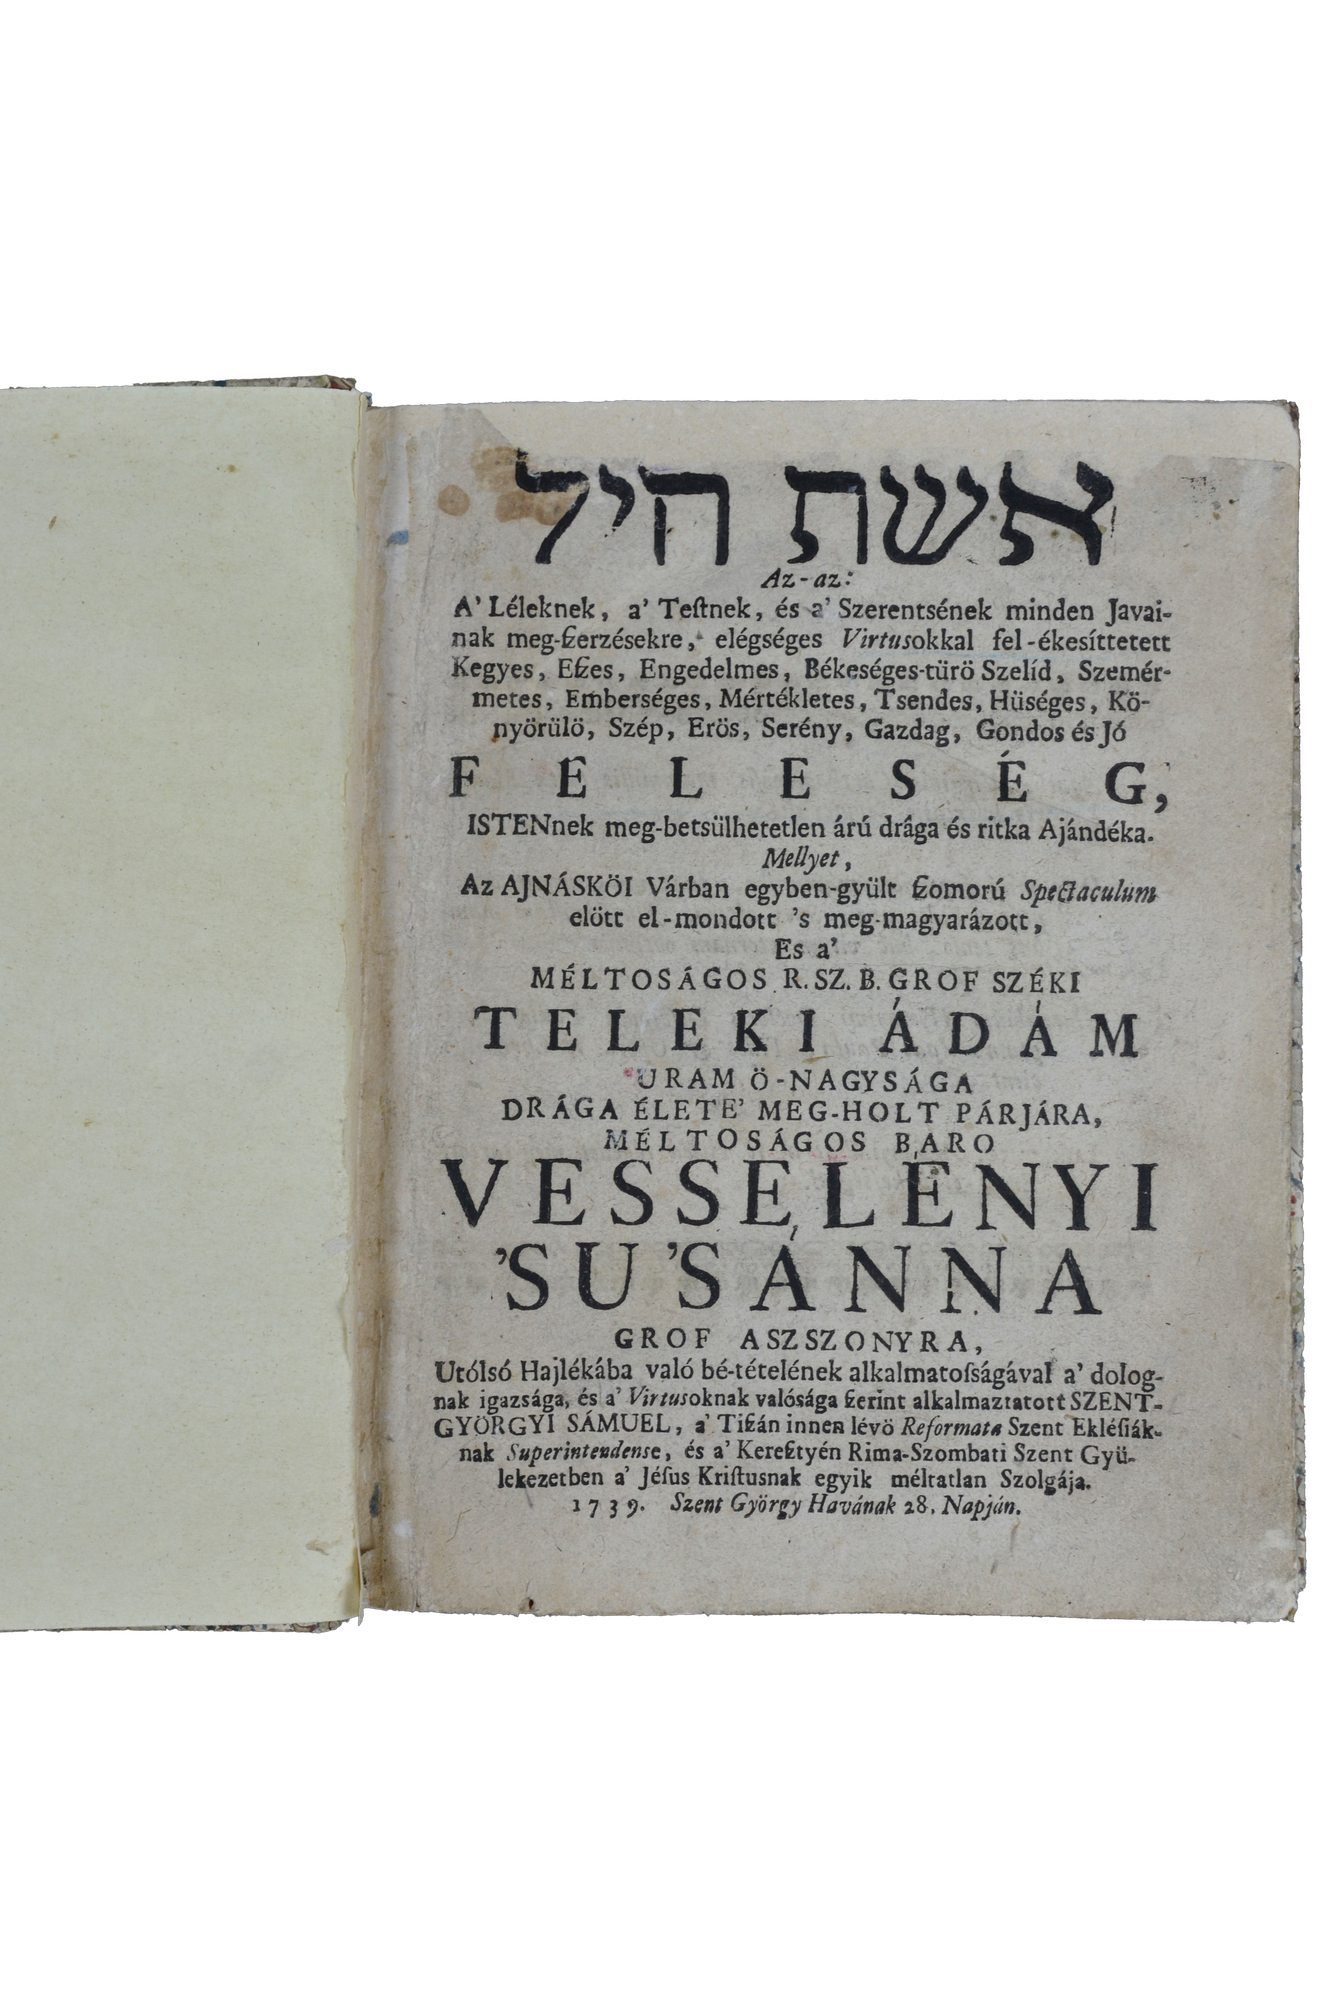 אשת חיל
Az-az:
A' Léleknek, a' Teſtnek, és a' Szerentsének minden Javai-
nak meg-ſzerzésekre, elégséges Virtusokkal fel-ékesíttetett
Kegyes, Eſzes, Engedelmes, Békeséges-türö Szelíd, Szemér-
metes, Emberséges, Mértékletes, Tsendes, Hüséges, Kö-
nyörülö, Szép, Erös, Serény, Gazdag, Gondos és Jó
FELESÉG,
ISTENnek meg-betsülhetetlen árú drága és ritka Ajándéka.
Mellyet,
Az AJNÁSKÖI Várban egyben-gyült ſzomorú Spectaculum
elött el-mondott 's meg-magyarázott,
Es a'
MÉLTOSÁGOS R. SZ. B. GROF SZÉKI
TELEKI ÁDÁM
URAM Ö-NAGYSÁGA
DRÁGA ÉLETE' MEG-HOLT PÁRJÁRA,
MÉLTOSÁGOS BÁRO
VESSELÉNYI
'SU'SÁNNA
GROF ASZSZONYRA,
Utólsó Hajlékába való bé-tételének alkalmatoſságával a' dolog-
nak igazsága, és a' Virtusoknak valósága ſzerint alkalmaztatott SZENT-
GYÖRGYI SÁMUEL, a' Tiſzán innen lévö Reformata Szent Ekléſiák-
nak Superintendense, és a' Kereſztyén Rima-Szombati Szent Gyü-
lekezetben a' Jéſus Kriſtusnak egyik méltatlan Szolgája.
1739. Szent György Havának 28. Napján.